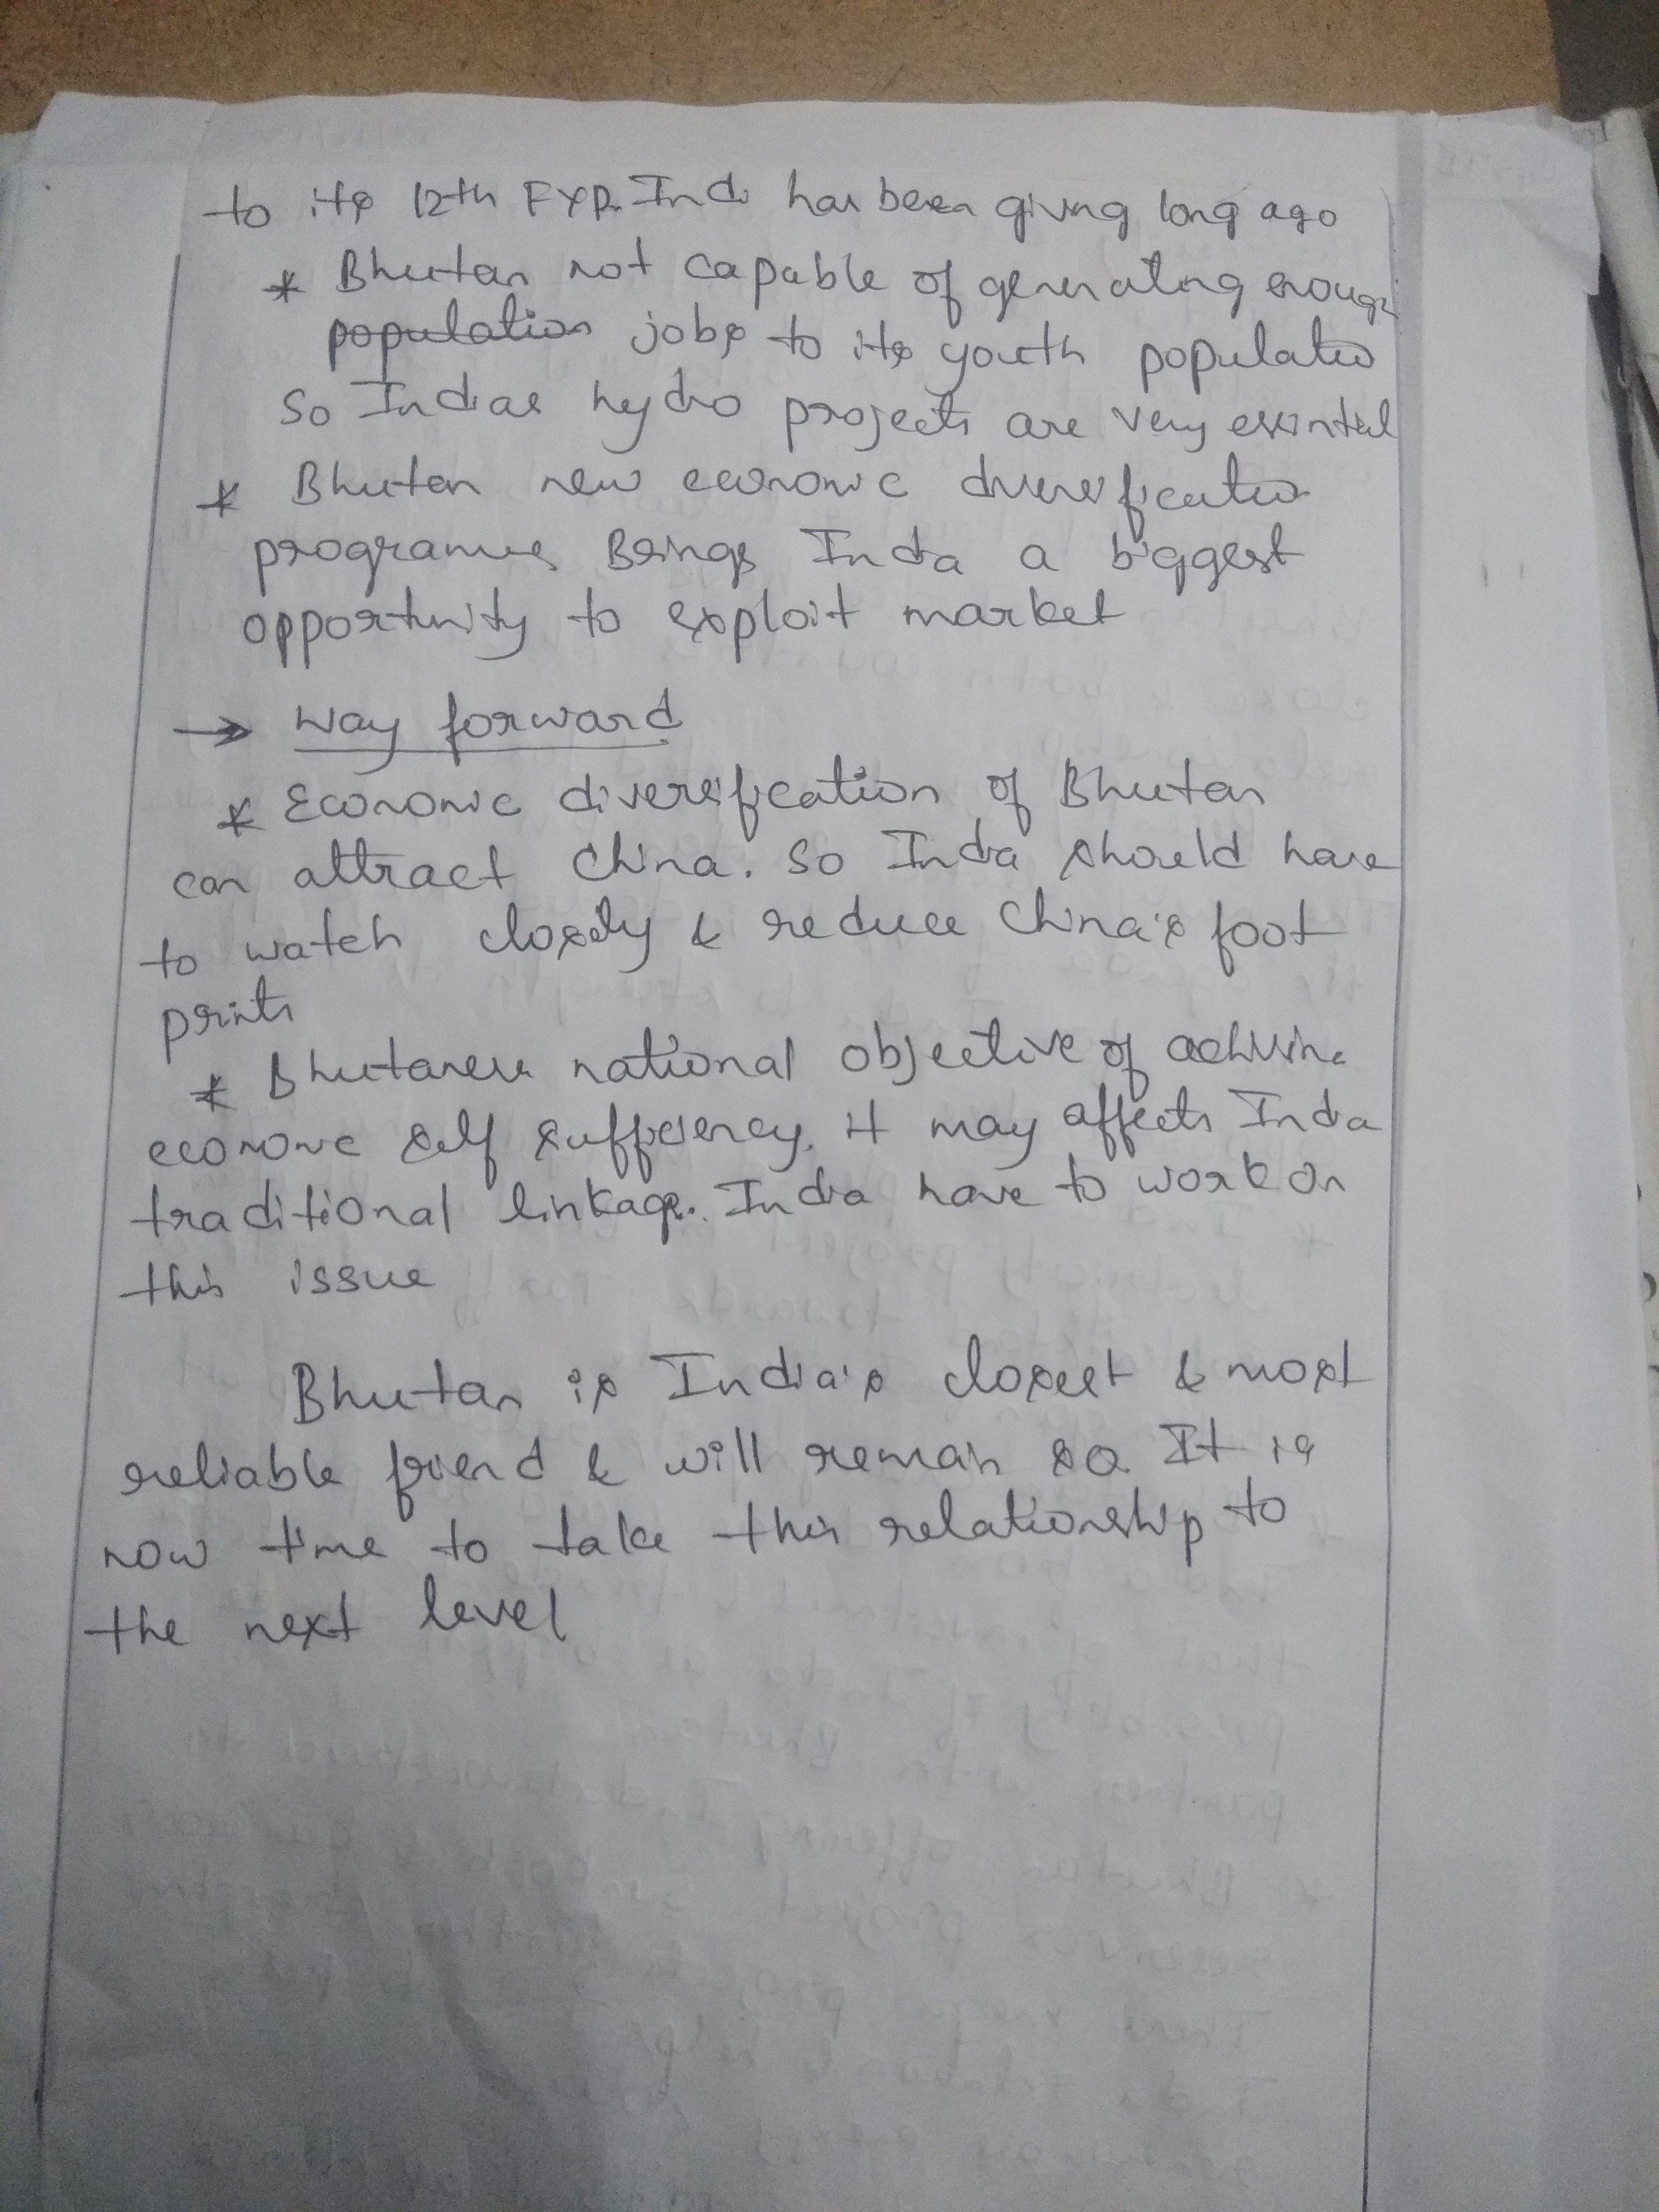 to its 12th FYP. Indi has been giving long ago
* Bhutan not capable of generating enough
population jobs to its youth populatio
so Indias hydro projects are very essintial
* Bhutan new economic diversificatio
programmes Brings India a biggest
opportunity to exploit market
→ Way forward
* Economic diversification of Bhutan
can attract China. So India should have
to watch closely & reduce China's foot
prints
* Bhutanese national objective of
economic self sufficiency. it may affects India
traditional linkage. India have to work on
this issue
Bhutan is India's closest & most
reliable friend & will remain so. It is
now time to take this relationship to
the next level